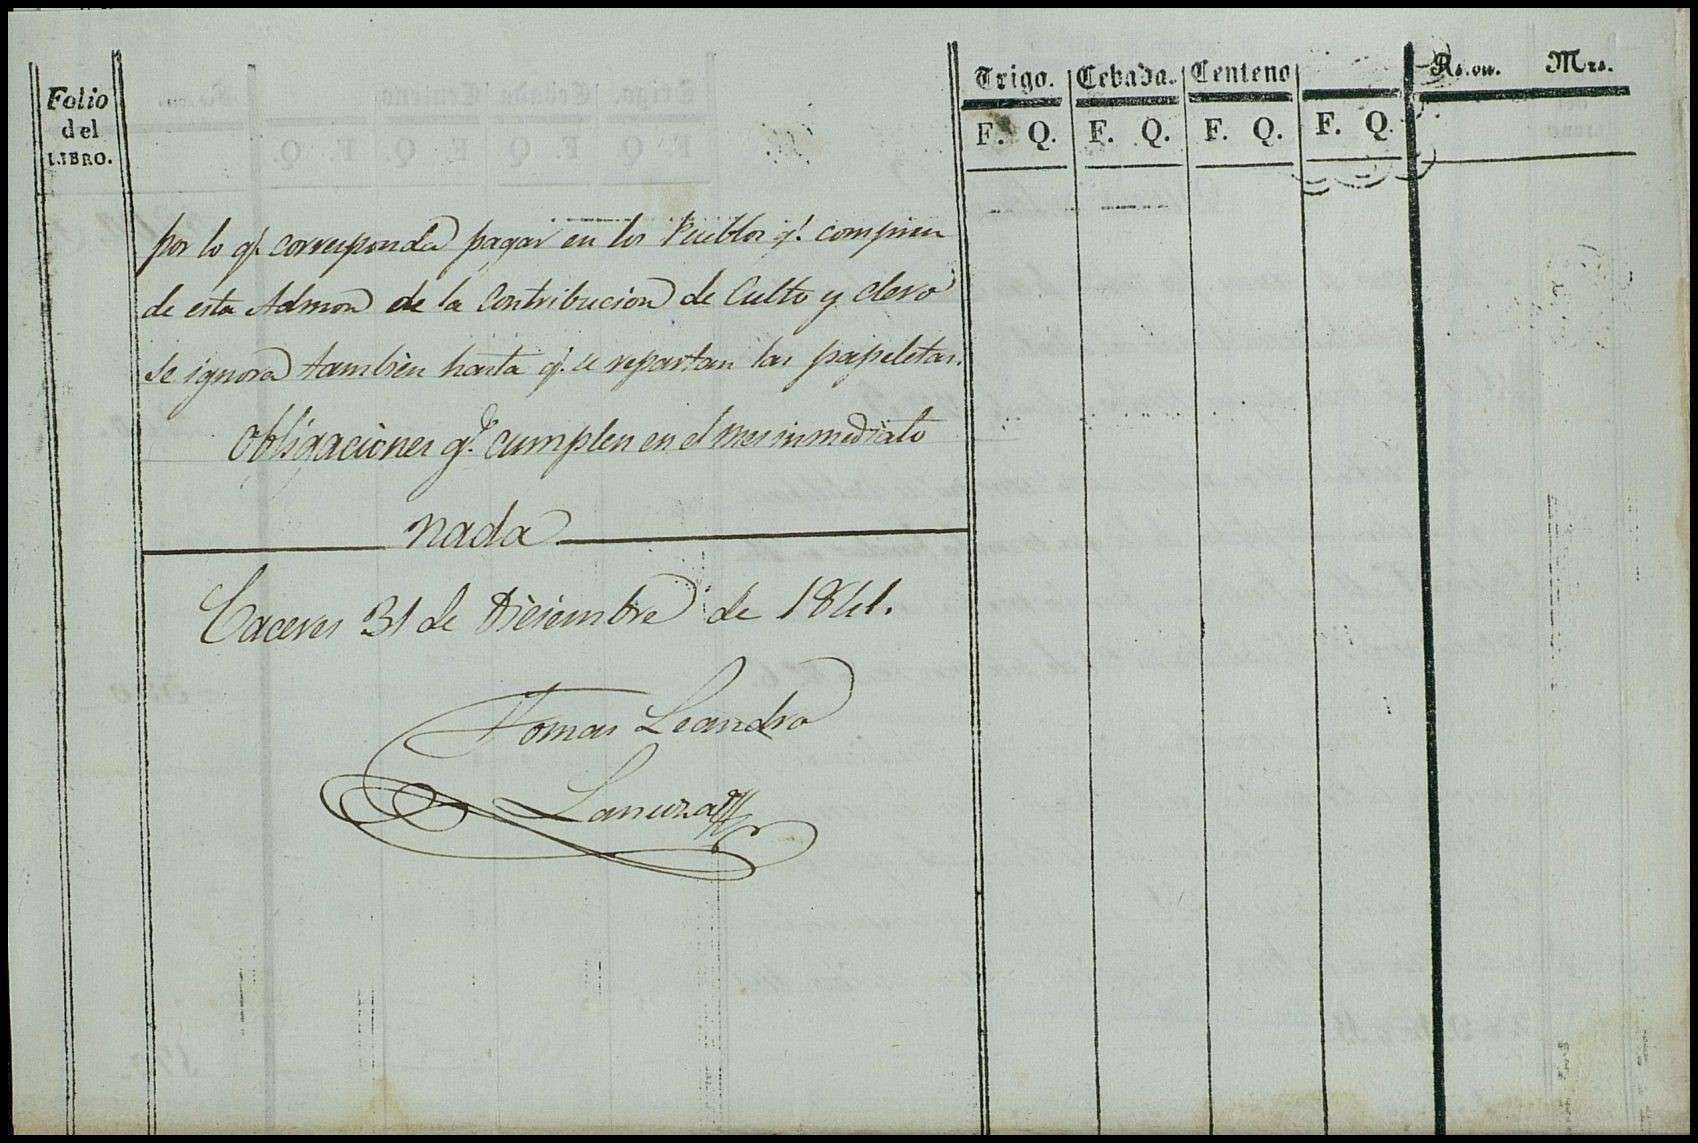 Folio
del
LIBRO.
Trigo. Cebada. Centeno Rs.vn. Mrs.
F. Q. F. Q. F. Q. F. Q
por lo q.e corresponda pagar en los Pueblos q.e compnen
de esta Admon de la Contribucion de Culto y clero
se ignora tambien hasta q.e se repartan las papeletas.
Obligaciones q.e cumplen en el mes inmediato
nada
Caceres 31 de Diciembre de 1841.
Tomas Leandro
Lanuza